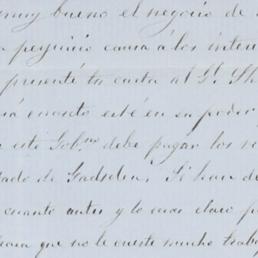 muy bueno el negocio de
perjuicio causa á los inter
presenté tu carta al Sr. Sh
esté en su poder
este Gob.no debe pagar los
tado de Gadsden. Si han de
cuanto antes y lo mas claro p
para que no le cueste mucho traba